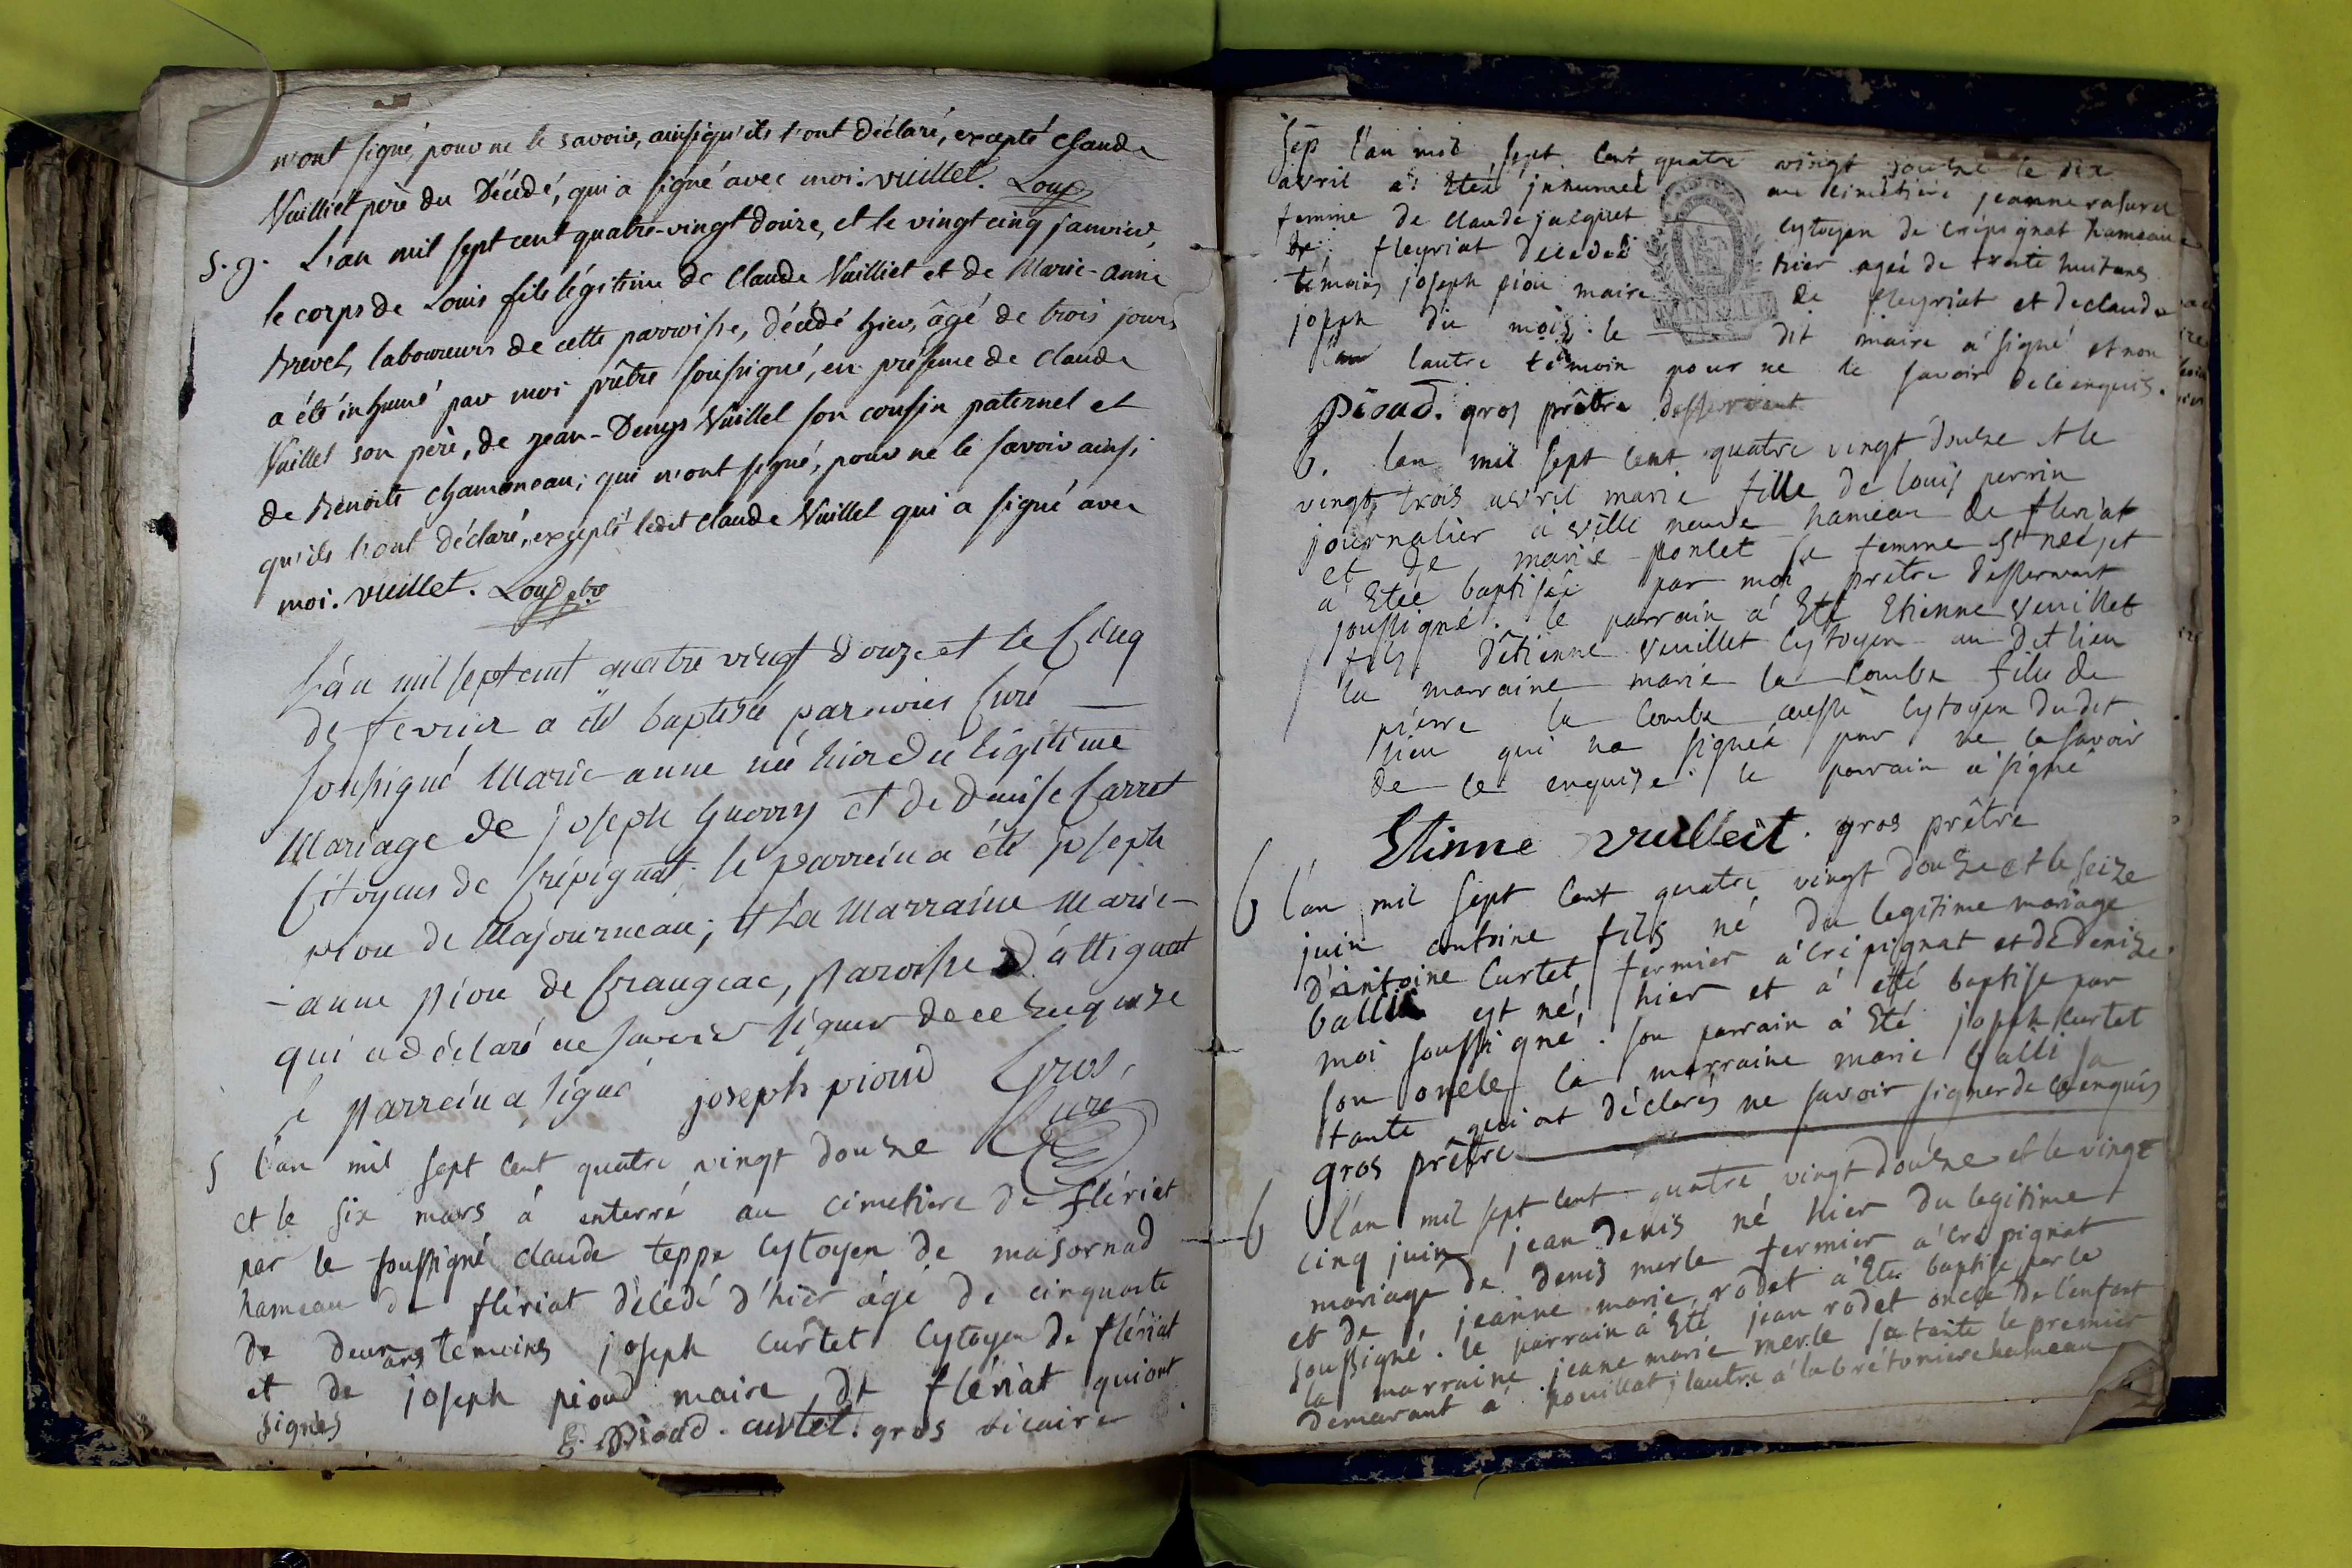 n'ont signé, pour ne le savoir, ainsi qu'ils l'ont déclaré, excepté Claude
Vuilliet père du Décédé, qui a signé avec moi. vuillet. Loup
S. g. L'an mil sept cent quatre-vingt douze, et le vingt cinq janvier,
le corps de Louis fils légitime de Claude Vuilliet et de Marie-anne
Brevet, laboureurs de cette parroisse, décédé hier, âgé de trois jours
a été inhumé par moi prêtre soussigné, en présence de Claude
Vuillet son père, de jean-Denys Vuillet son cousin paternel et
de Benoite Chamoneau; qui n'ont signé, pour ne le savoir ainsi
qu'ils l'ont déclaré, excepté ledit Claude Vuillet qui a signé avec
moi. vuillet. Loup pbre
L'an mil sept cent quatre vingt douze et le Cinq
de fevrier a été baptisée par nous Curé
soussigné Marie-anne née hier du légitime
Mariage de joseph Guerry et de Denise Carret
Citoyens de Crépignat. le parrein a été joseph
piou de Majourneau; et La Marraine Marie-
-anne piou de Crangeac, paroisse d'attignat
qui a déclaré ne savoir signer de ce Enquise
le parrein a signé joseph pioud Gros,
Curé
5 l'an mil sept cent quatre vingt douze
et le six mars à enterré au cimetiere de flériat
par le soussigné claude teppe cytoyen de masornad
hameau de flériat décédé d'hier âgé de cinquante
de deux ans temoins joseph curtet cytoyen de flériat
et de joseph pioud maire de flériat qui ont
signés
pioud. curtet. gros vicaire
sep l'an mil sept cent quatre vingt douze le dix
avril a Etée inhumée au cimetiere jeanne rasurel
femme de claude jacquet cytoyen de crépignat hameau
de fleyriat décedée hier agée de trente huit ans
témoins joseph piou maire de fleyriat et de claude
joseph du mois. le dit maire a signé et non
lautre témoin pour ne le savoir de ce enquis.
pioud. gros prêtre desservant
b. lan mil sept cent quatre vingt douze et le
vingt trois avril marie fille de louis perrin
journalier a ville neuve hameau de fleriat
et de marie ponlet sa femme est née, et
a Etée baptisée par moi prêtre desservant
soussigné. le parrain a Eté Etienne veuillet
fils d'êtienne veuillet cytoyen au dit lieu
la marraine marie la combe fille de
pierre la combe aussi cytoyen du dit
lieu qui na signée pour ne le savoir
de ce enquise. le parrain a signé
Etienne vuillect. gros prêtre
b l'an mil sept cent quatre vingt douze et le seize
juin antoine fils né du legitime mariage
d'antoine Curtet fermier à crépignat et de denize
balli est né, hier et a été baptisé par
moi soussigné. son parrain a Eté joseph curtet
son oncle la marraine marie balli sa
tante qui ont déclarés ne savoir signer de ce enquis
gros prêtre
b l'an mil sept cent quatre vingt douze et le vingt
cinq juin jean denis né hier du legitime
mariage de denis merle fermier a crépignat
et de jeanne marie rodet a Ete baptisé par le
soussigné. le parrain a Eté jean rodet oncle de l'enfant
la marraine jeane marie merle sa tante le premier
demeurant à pouillat, lautre à la brétoniere hameau